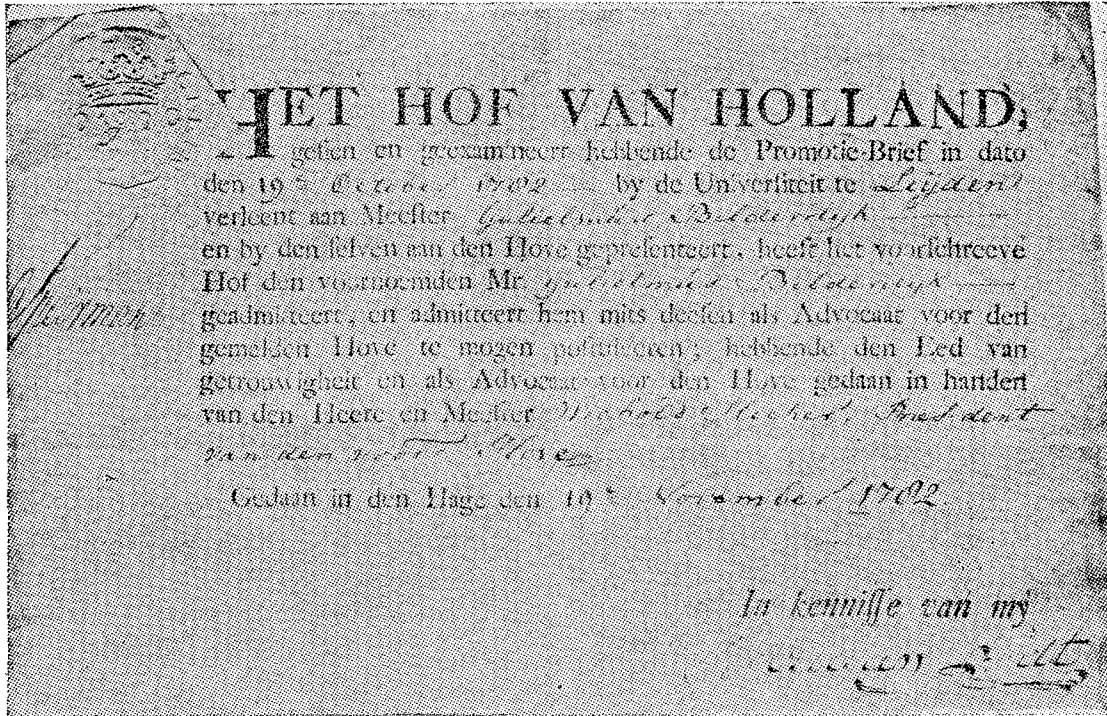 HET HOF VAN HOLLAND,
geſien en geexamineert hebbende de Promotie-Brief in dato
den 19 October 1782 by de Univerſiteit te Leyden
verleent aan Meeſter Bilderdyk
en by den ſelven aan den Hove gepreſenteert, heeft het voorſchreeve
Hof den voornoemden Mr. Gulielmus Bilderdyk
geadmitteert, en admitteert hem mits deeſen als Advocaat voor den
gemelden Hove te mogen poſtuleeren; hebbende den Eed van
getrouwigheit en als Advocaat voor den Hove gedaan in handen
van den Heere en Meeſter President
van den voorſ Hove
Gedaan in den Hage den 19 November 1782.
In kenniſſe van my